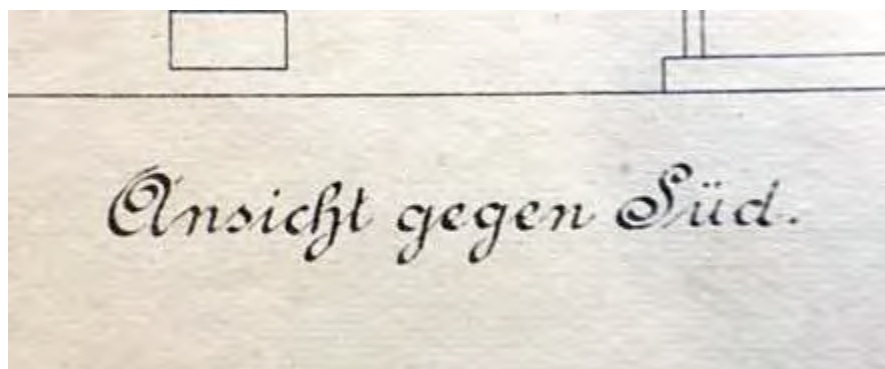 Ansicht gegen Süd.